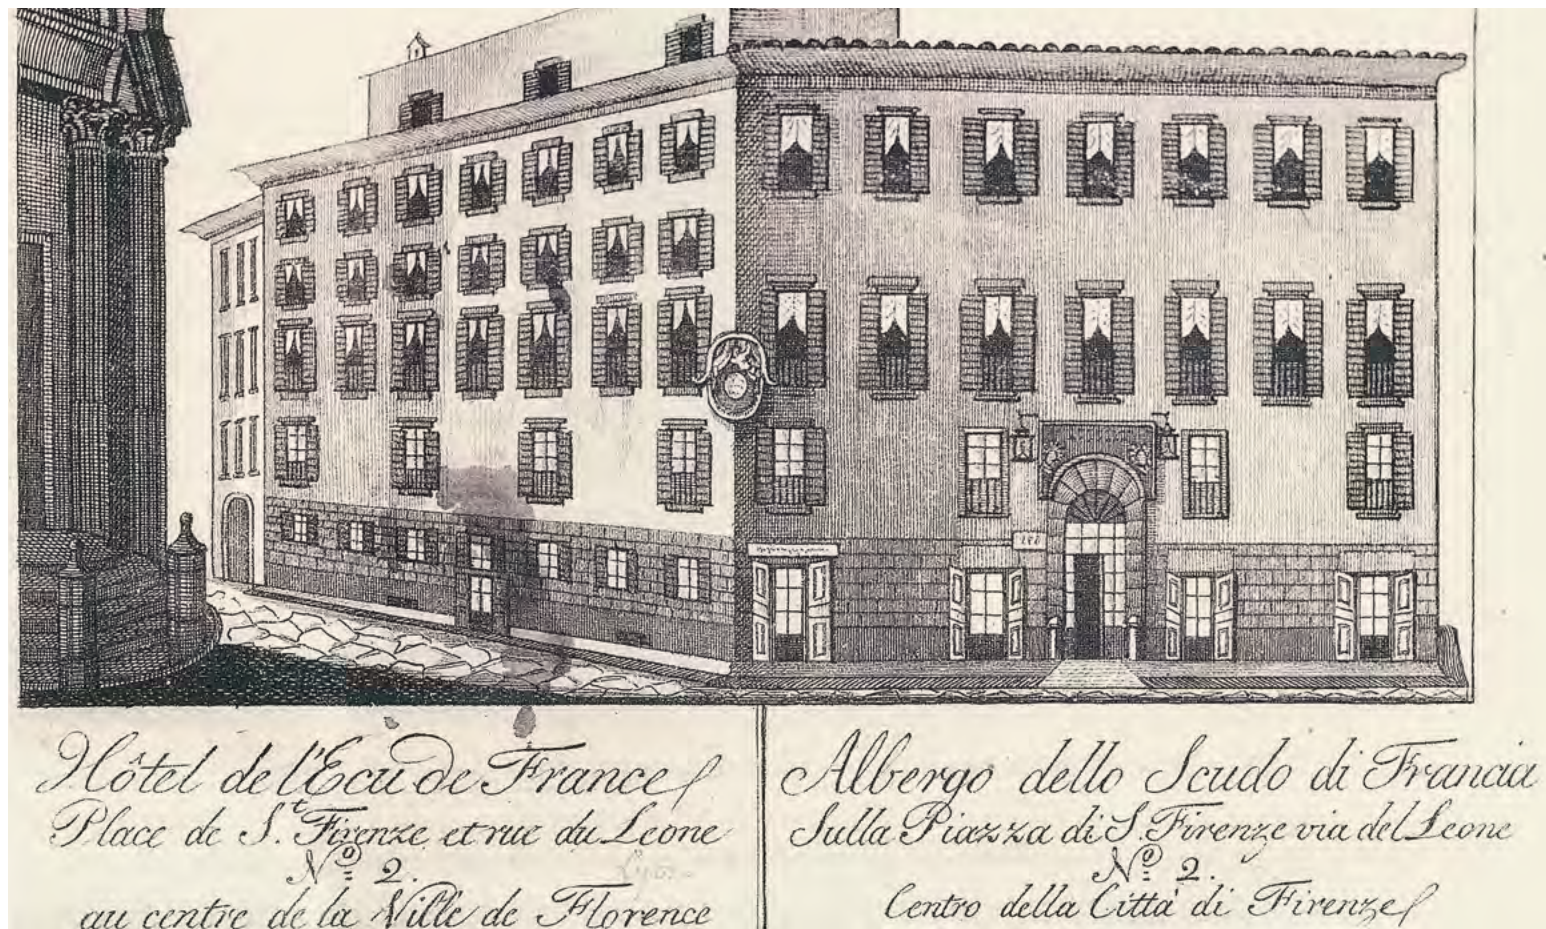 Hôtel de l'Ecu de France
Place de S.t Firenze et rue du Leone
Nº 2.
au centre de la Ville de Florence
Albergo dello Scudo di Francia
Sulla Piazza di S. Firenze via del Leone
Nº 2.
Centro della Città di Firenze